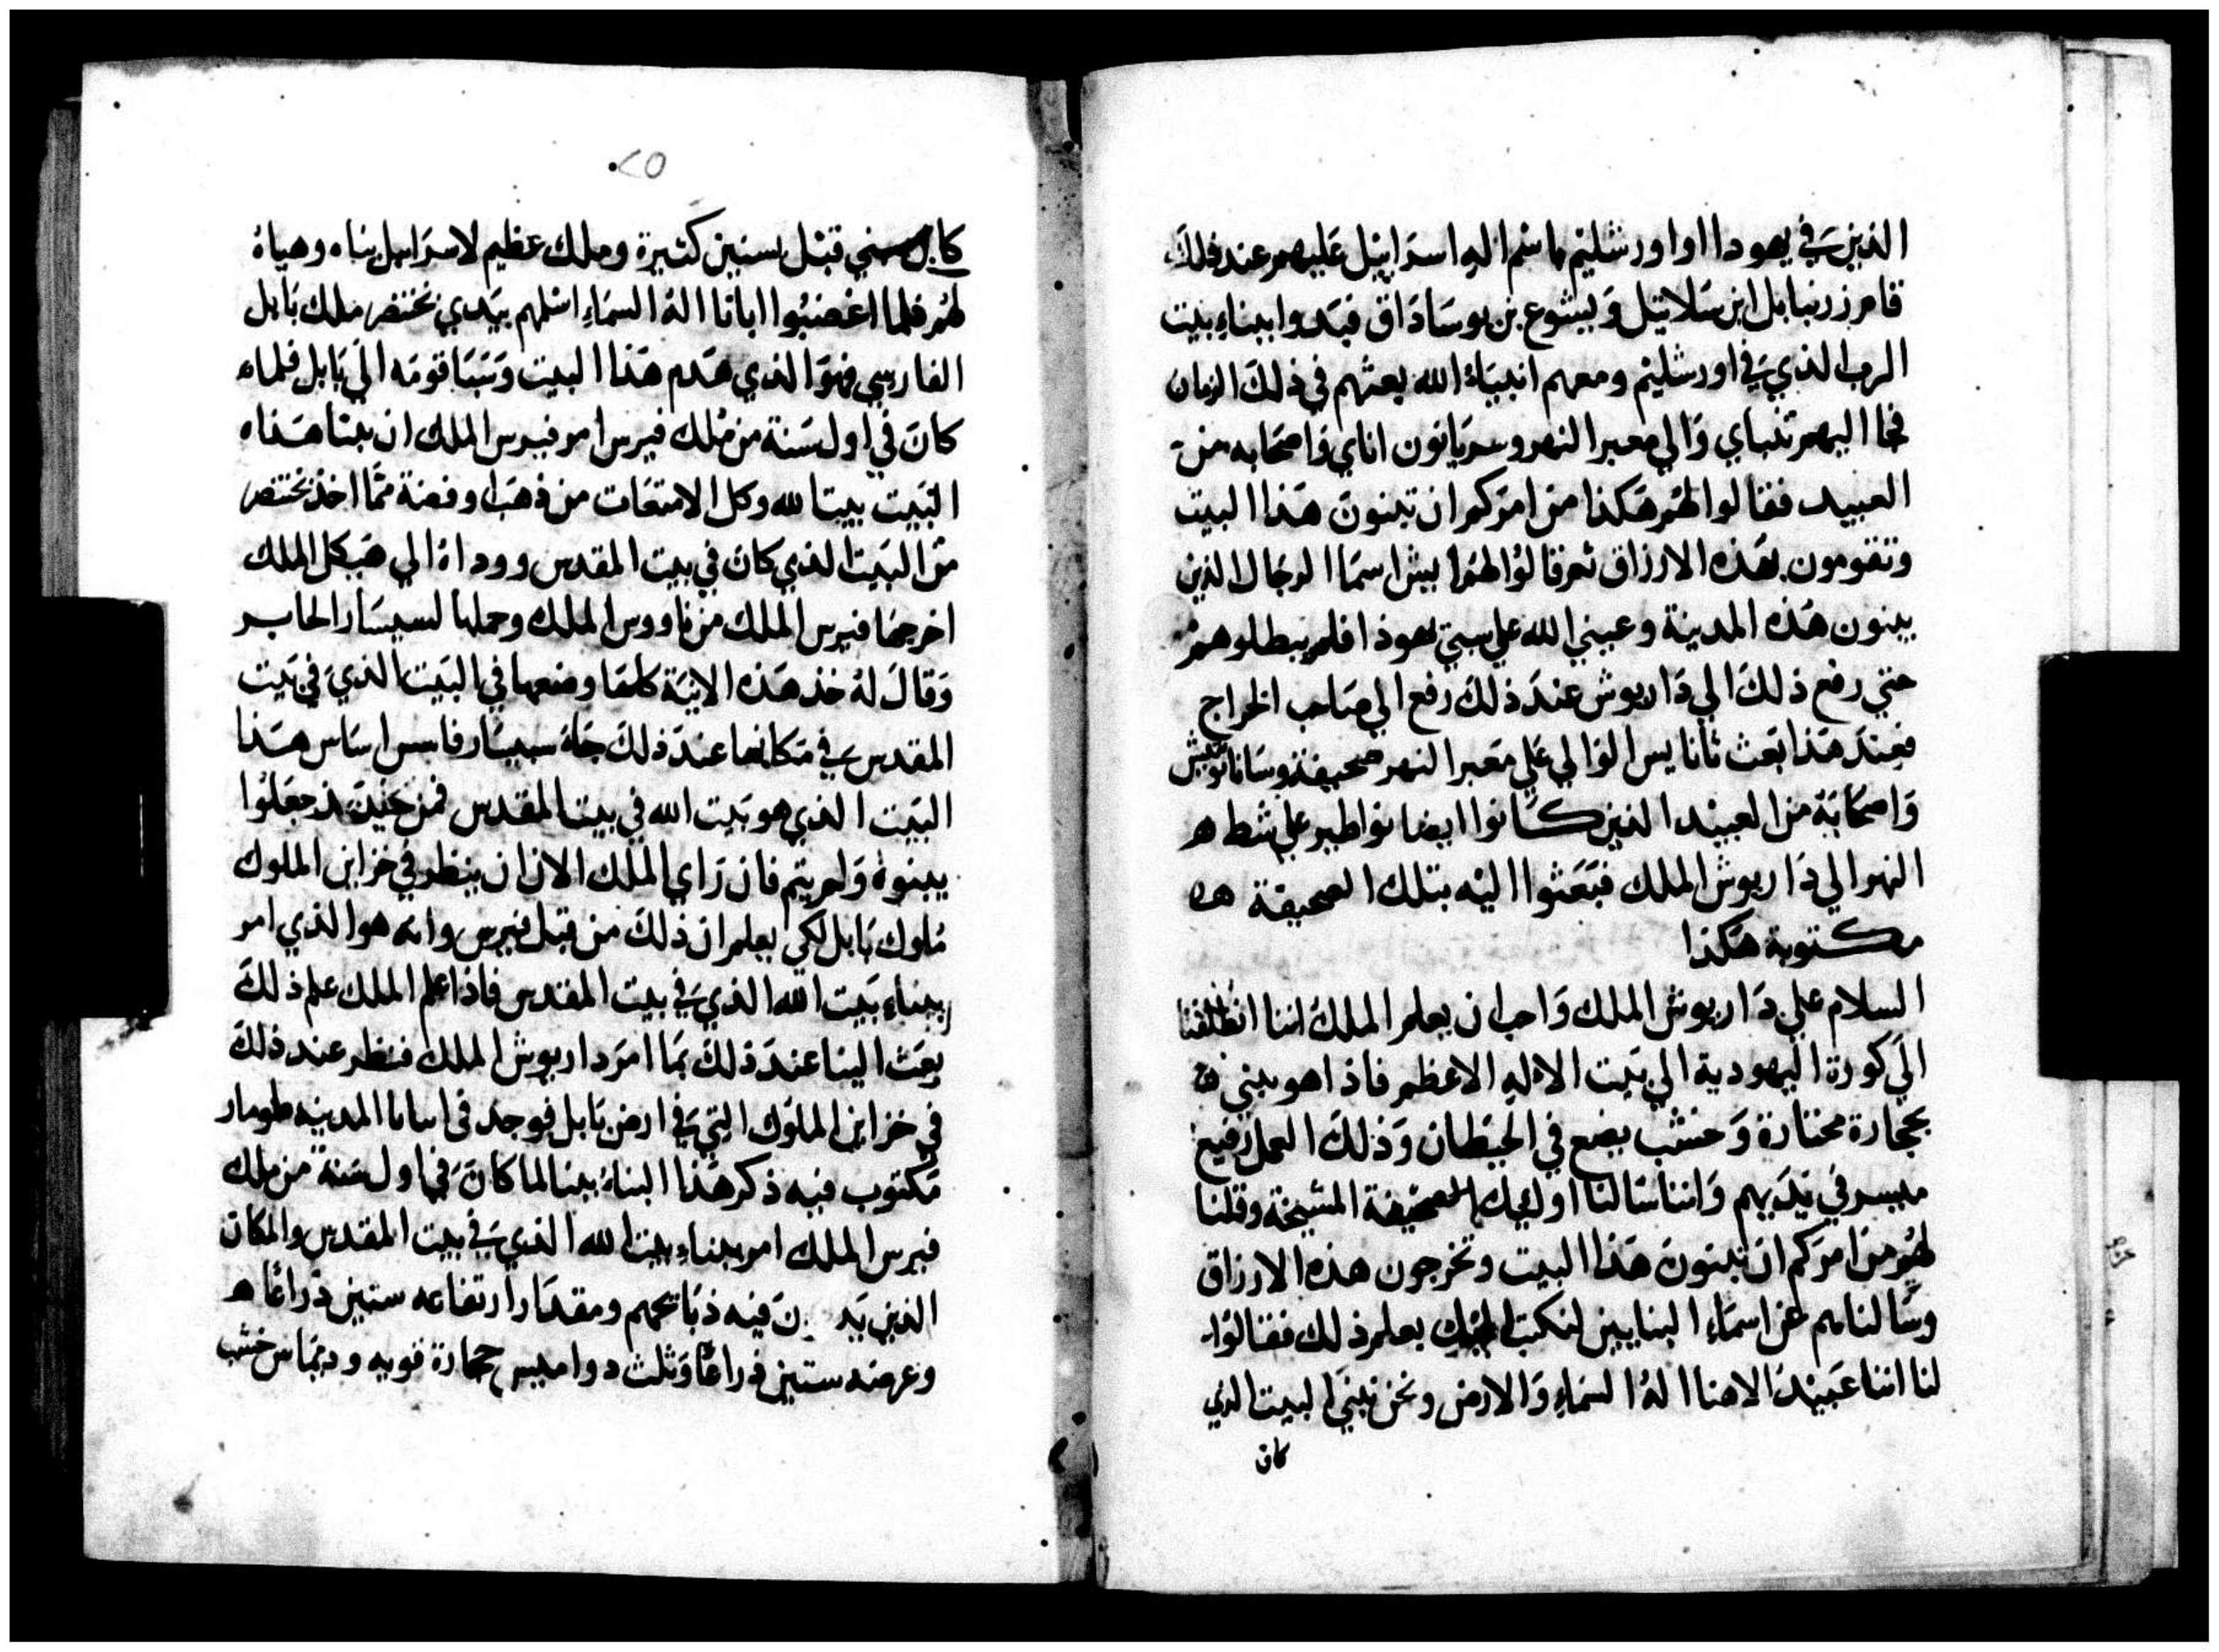 الذين في يهودا او اورشليم باسم اله اسراييل عليهم عند ذلك
قام زرنبابل ابن سلاتيل وييشوع بن يوساداق فبدوا ببناء بيت
الرب الذي في اورشليم ومعهم انبياء الله بعثهم في ذلك الزمان
فجا اليهم تنباي والي معبر النهر وسريانون اناي واصحابه من
العبيد فقالوا لهم هكذا من امركم ان تبنون هذا البيت
وتقومون بهذه الارزاق ثم قالوا لهم ايش اسما الرجال الذين
يبنون هذه المدينة وعيني الله علي سبي يهوذا فلم يبطلوهم
حتي رفع ذلك الي داريوش عند ذلك رفع الي صاحب الخراج
فعند هذا بعث ثانايس الوالي علي معبر النهر صحيفة وساناتوبيش
واصحابة من العبيد الذين كانوا ايضا نواطير علي شط ه
النهر الي داريوش الملك فبعثوا اليه بتلك الصحيفة ه
مكتوبة هكذا
السلام علي داريوش الملك واحب ان يعلم الملك اننا انطلقنا
الي كورة اليهودية الي بيت الاله الاعظم فاذا هو يبني
بحجارة مختارة وخشب يضع في الحيطان وذلك العمل رفيع
ميسر في يديهم واننا سالنا اوليك المشيخة وقلنا
لهم من امركم ان تبنون هذا البيت وتخرجون هذه الارزاق
وسالناهم عن اسماء البنايين لنكتب اليك بعلم ذلك فقالوا
لنا اننا عبيد الاهنا اله السماء والارض ونحن نبني البيت الذي
كان
٢٥
كان بني قبل سنين كثيرة وملك عظيم لاسراييل بناه وهياه
لهم فلما اغضبوا ابانا اله السماء اسلمهم بيدي بختنصر ملك بابل
الفارسي فهو الذي هدم هذا البيت وسبا قومه الي بابل فلما
كان في اول سنة من ملك فيرس امر فيرس الملك ان يبنا هذا
البيت بيتا لله وكل الامتعات من ذهب وفضة مما اخذ بختنصر
من البيت الذي كان في بيت المقدس ووداه الي هيكل الملك
اخرجها فيرس الملك من ناووس الملك وحملها لسيسار الحابر
وقال له خذ هذه الانية كلها وضعها في البيت الذي في بيت
المقدس في مكانها عند ذلك جاء سيسار فاسس اساس هذا
البيت الذي هو بيت الله في بيت المقدس فمن حينئذ جعلوا
يبنوه ولم يتم فان راي الملك الان ان ينظر في خزاين الملوك
ملوك بابل لكي يعلم ان ذلك من قبل فيرس وانه هو الذي امر
ببناء بيت الله الذي في بيت المقدس فاذا علم الملك علم ذلك
بعث الينا عند ذلك بما امر داريوش الملك فنظر عند ذلك
في خزاين الملوك التي في ارض بابل فوجد في المدينه طومار
مكتوب فيه ذكر هذا البناء بينا لما كان في اول سنة من ملك
فيرس الملك امر ببناء بيت الله الذي في بيت المقدس والمكان
الذين فيه ذبايحهم ومقدار ارتفاعه ستين ذراعا ه
وعرضه ستين ذراعا وثلث دواميس حجارة قويه وديماس خشب